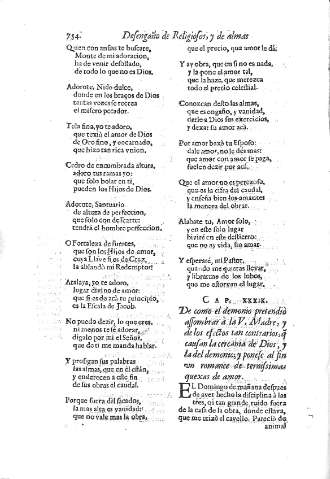 754 Desengaño de Religiosos, y de almas
Quien con ansias te buscare,
Monte de mi adoracion,
ha de venir desollado,
de todo lo que no es Dios.
Adorote, Nido dulce,
donde en los braços de Dios
tantas vozes se roza
el misero pecador.
Tela fina, yo te adoro,
que texiò el amor de Dios
de Oro fino, y encarnado,
que hizo tan rica vnion.
Cedro de encumbrada altura,
adoro tus ramas yo:
que solo bolar en ti,
pueden los Hijos de Dios.
Adorote, Santuario
de altura de perfeccion,
que solo con
tendrà el hombre perfeccion.
O Fortaleza de fuertes,
que son los Hijos de amor,
cuya Llave
la mi Redemptor!
Atalaya, yo te adoro,
lugar divino de amor:
que si es acà tu principio,
es la Escala de Jacob.
No puedo dezir, lo que eres,
ni menos te sè adorar,
digalo por mi el Señor,
que de ti me manda hablar.
Y prosigan sus palabras
las almas, que en èl estàn,
y enderecen a este fin
de sus obras el caudal.
Porque fuera del
la mas alta es vanidad:
que no vale mas la obra,
que el precio, que amor le dà.
Y ay obra, que en sì no es nada,
y la pone el amor tal,
que la haze, que merezca
todo el precio celestial.
Conozcan desto las almas,
que es engaño, y vanidad,
darse a Dios sus exercicios,
y dexar su amor acà.
Por amor baxò tu Esposo:
dale amor, no le des mas:
que amor con amor se paga,
suelen dezir por aì.
Que el amor no es perezoso,
que es la cifra del caudal,
y enseña bien los amantes
la manera del obrar.
Alabate tu, Amor solo,
y en este solo lugar
biviré en este destierro:
que no ay vida, sin amar.
Y esperaré, mi Pastor,
quando me quieras llevar,
y librarme de los lobos,
que me estorvan el lugar.
CAP. XXXIX.
De como el demonio pretendiò
assombrar à la V. Madre, y
de los efectos tan contrarios, q̃
causan la cercania de Dios, y
la del demonio; y ponese al fin
un romance de ternissimas
quexas de amor.
EL Domingo de mañana despues
de aver hecho la disciplina à las
tres, oì tan grande ruido fuera
de la casa de la obra, donde estava,
que me erizò el cavello. Pareciò do
animal